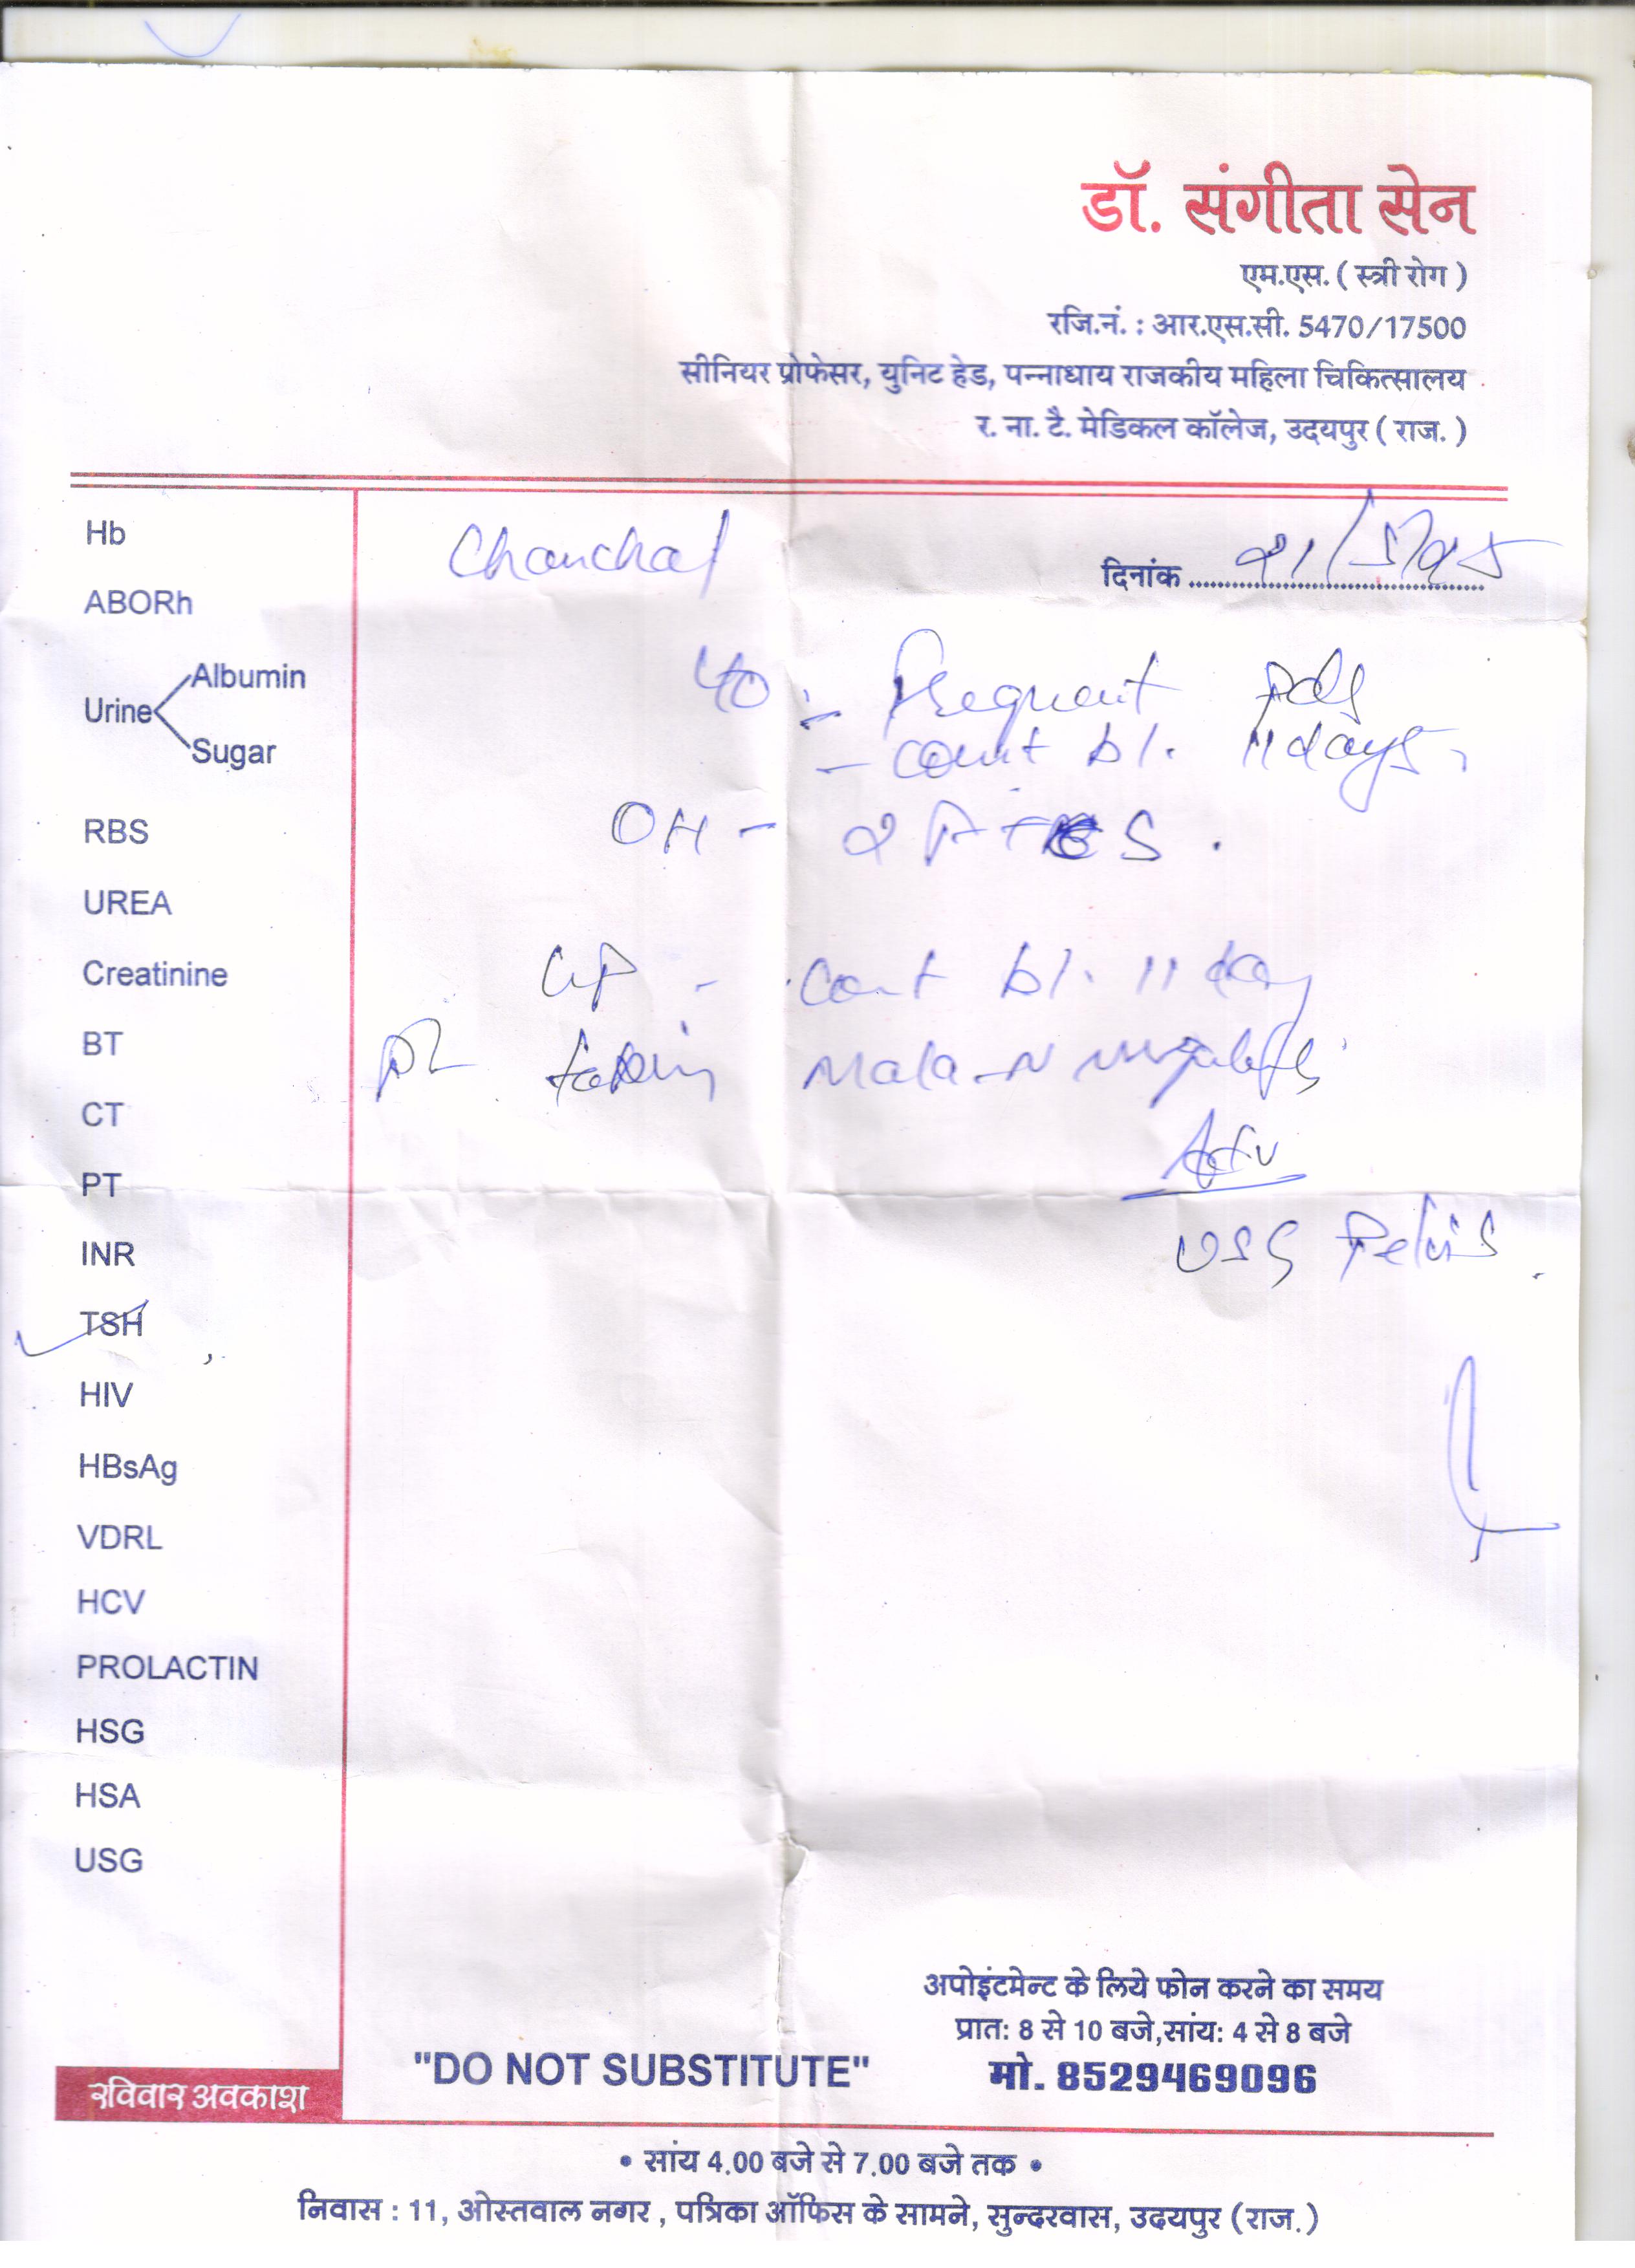 डॉ. संगीता सेन
एम.एस. ( स्त्री रोग )
रजि.नं. : आर.एस.सी. 5470/17500
सीनियर प्रोफेसर, युनिट हेड, पन्नाधाय राजकीय महिला चिकित्सालय
र. ना. टै. मेडिकल कॉलेज, उदयपुर ( राज. )
Chanchal
दिनांक
- Frequent
- cont bl. 11 days
OH - 2
- cont bl. 11 day
taking Mala-N
Adv
USG Pelvis
Hb
ABORh
Urine
Albumin
Sugar
RBS
UREA
Creatinine
BT
CT
PT
INR
TSH
HIV
HBsAg
VDRL
HCV
PROLACTIN
HSG
HSA
USG
रविवार अवकाश
"DO NOT SUBSTITUTE"
अपोइंटमेन्ट के लिये फोन करने का समय
प्रात: 8 से 10 बजे,सांय: 4 से 8 बजे
मो. 8529469096
• सांय 4.00 बजे से 7.00 बजे तक •
निवास : 11, ओस्तवाल नगर , पत्रिका ऑफिस के सामने, सुन्दरवास, उदयपुर (राज.)